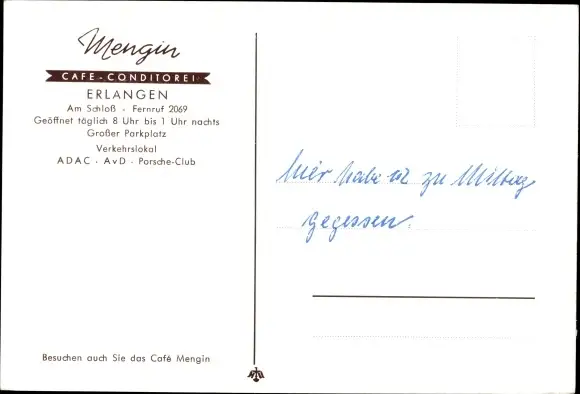 Mengin
CAFE-CONDITOREI
ERLANGEN
Am Schloß - Fernruf 2069
Geöffnet täglich 8 Uhr bis 1 Uhr nachts
Großer Parkplatz
Verkehrslokal
ADAC · AvD · Porsche-Club
hier habe ich zu Mittag
gegessen.
Besuchen auch Sie das Café Mengin